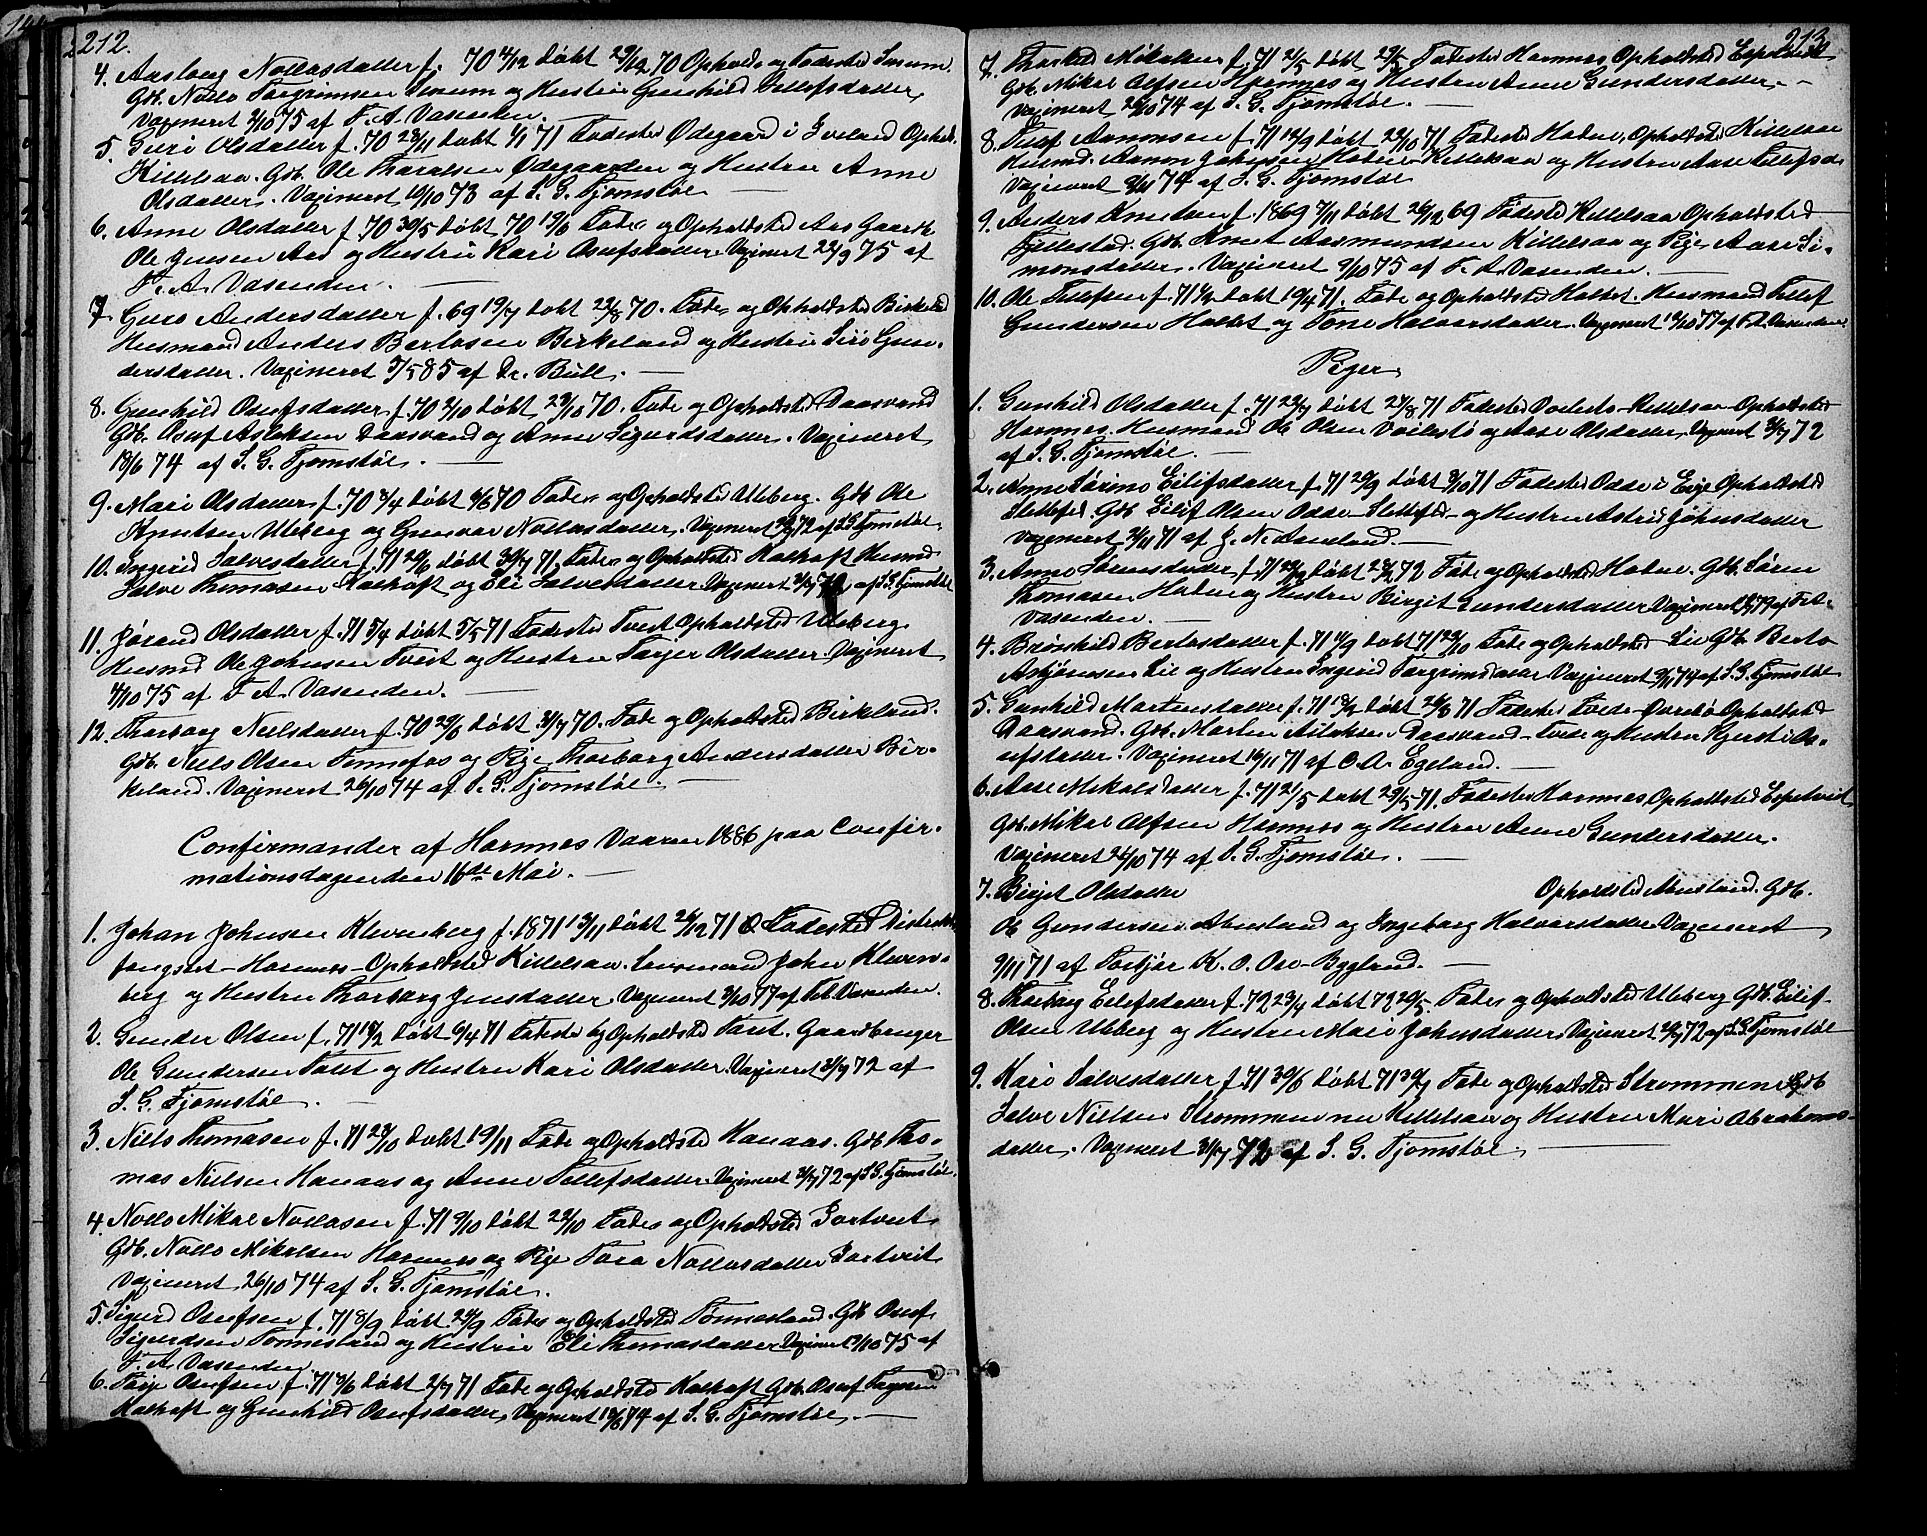 212.
4. Aasborg Nollasdatter f. 70 4/12 døbt 29/12 70 Opholds og Fødested Senum.
Gdb. Nollo Torgrimsen Senum og Hustru Gunhild Tellefsdatter,
Vaxineret 2/10 75 af F. A. Vasenden.
5. Guri Olsdatter f. 70 28/11 døbt 1/1 71 Fødested Ødegaard i Iveland Opholds.
Killelsaa. Gdb. Ole Tharalsen Ødegaarden og Hustru Anne
Olsdatter. Vaxineret 10/10 73 af S. G. Fjomstøl
6. Anne Olsdatter f. 70 30/5 døbt 70 19/6 Føde og Opholdsted Aas Gaardb.
Ole Jensen Aas og Hustru Kari Osufsdatter Vaxineret 22/9 75 af
F. A. Vasenden.
7. Guro Andersdatter f. 69 19/7 døbt 28/8 70. Føde og Opholdsted Birkeland
Husmand Anders Bertosen Birkeland og Hustru Siri Gun-
dersdatter. Vaxineret 7/5 85 af Dr. Bull.
8. Gunhild Osufsdatter f. 70 2/10 døbt 23/10 70. Føde og Opholdsted Daasvand
Gdb. Osuf Aslaksen Daasvand og Anne Sigurdsdatter. Vaxineret
18/6 74 af S. G. Fjomstøl.
9. Mari Olsdatter f. 70 3/4 døbt 6/6 70 Føde og Opholdsted Uleberg. Gdb Ole
Knutsen Uleberg og Gunvor Nollosdatter. Vaxineret 72 af S. G. Fjomstøl.
10. Ingerid Salvesdatter f. 71 20/6 døbt 30/7 71 Føde og Opholdsted Kathaft Husmd
Salve Thomasen Kathaft og Eli Salvesdatter Vaxineret 72 af S. G. Fjomstøl
11. Jørand Olsdatter f. 71 5/4 døbt 5/5 71 Fødested Tveit Opholdsted Uleberg.
Husmd Ole Johnsen Tveit og Hustru Torjer Olsdatter. Vaxineret
4/10 75 af F. A. Vasenden.
12. Thorborg Nielsdatter f. 70 29/6 døbt 31/7 70. Føde og Opholdsted Birkland.
Gdb. Niels Olsen Fennefos og Pige Thorborg Andersdatter Bir-
keland. Vaxineret 26/10 74 af S. G. Fjomstøl
Confirmander af Hornnes Vaaren 1886 paa Confir-
mationsdagen den 16de Mai.
1. Johan Johnsen Klevenberg f. 1871 13/11 døbt 26/12 71 Fødested Distrikts-
fængslet - Hornnes - Opholdsted Killelsaa. Lensmand John Kleven-
berg og Hustru Thorborg Jensdatter Vaxineret 3/10 77 af Fil Vasenden.
2. Gunder Olsen f. 71 18/2 døbt 6/4 71 Fødested og Opholdsted Faut. Gaardbruger
Ole Gundersen Faut og Hustru Kari Olsdatter. Vaxineret 31/7 72 af
S. G. Fjomstøl.
3. Niels Thomasen f. 71 28/10 døbt 19/11 Føde og Opholdsted Kanaas. Gdb Tho-
mas Nielsen Kanaas og Anne Tellefsdatter Vaxineret 31/7 72 af S. G. Fjomstøl.
4. Nollo Mikal Nollosen f. 71 9/10 døbt 29/10 Føde og Opholdsted Fortveit.
Gdb. Nollo Mikalsen Hornnes og Pige Tora Nollosdatter Fortveit
Vaxineret 26/10 74 af S. G. Fjomstøl.
5. Sigurd Osufsen f. 71 8/9 døbt 24/9 Føde og Opholdsted Tønnesland. Gdb Osuf
Sigurdsen Tønnesland og Hustru Eli Thomasdatter Vaxineret 75 af
F. A. Vasenden
6. Terje Osufsen f. 71 døbt 2/7 71 Føde og Opholdsted Kathaft Gdb. Osuf
Kathaft og Gunhild Osufsdatter, Vaxineret 18/6 74 af S. G. Fjomstøl.
213
7. Thorkild Mikalsen f. 71 21/5 døbt 29/5 Fødested Hornnes, Opholdsted Espetveit
Gdb. Mikal Olfsen Hornnes og Hustru Anne Gundersdatter.
Vaxineret 26/10 74 af S. G. Fjomstøl.
8. Tellef Aanonsen f. 71 18/9 døbt 22/10 71 Fødested Hodne, Opholdsted Killelsaa
Husmd. Aanon Johnsen Hodne-Killelsaa og Hustru Aase Tellefsd.
Vaxineret 74 af S. G. Fjomstøl
9. Anders Knutsen f. 1869 7/11 døbt 26/12 69 Fødested Killelsaa Opholdsted
Fjellestad. Gdb. Knut Aasmundsen Killelsaa og Pige Aase Si-
monsdatter. Vaxineret 9/10 75 af F. A. Vasenden.
10. Ole Tellefsen f. 71 døbt 10/4 71. Føde og Opholdsted Hallet. Husmand Tellef
Gundersen Hallet og Tone Halvorsdatter. Vaxineret 77 af F. A. Vasenden.
Piger
1. Gunhild Olsdatter f. 71 22/7 døbt 27/8 71 Fødested Voilestø-Killelsaa-Opholdsted
Hornnes. Husmand Ole Olsen Voilestø og Aase Olsdatter, Vaxineret 31/7 72
af S. G. Fjomstøl.
2. Anne Sørine Eilifsdatter f. 71 20/9 døbt 8/10 71 Fødested Odde i Evje Opholdsted
Slettefed. Gdb Eilif Olsen Odde-Slettefed- og Hustru Astrid Johnsdatter
Vaxineret 71 af J. N. Aneland.
3. Anne Sørensdatter f. 71 døbt 72 Føde og Opholdsted Hodne. Gdb. Søren
Thomasen Hodne og Hustru Birgit Gundersdatter Vaxineret af Fil.
Vasenden.
4. Brønhild Bertosdatter f. 71 døbt 71 29/10 Føde og Opholdsted Lie Gdb. Berto
Asbjørnsen Lie og Hustru Ingerid Torgrimsdatter Vaxineret 74 af S. G. Fjomstøl
5. Gunhild Martensdatter f. 71 døbt 71 Fødested Tvede-Øvrebø Opholdsted
Daasvand. Gdb. Morten Aslaksen Daasvand-Tvede og Hustru Kjersti Os-
ufsdatter. Vaxineret 16/11 71 af O. A. Egeland.
6. Aase Mikalsdatter f. 71 21/5 døbt 29/5 71. Fødested Hornnes Opholdsted Espetveit
Gdb. Mikal Olfsen Hornnes og Hustru Anne Gundersdatter.
Vaxineret 26/10 74 af S. G. Fjomstøl.
7. Birgit Olsdatter Opholdsted Abusland. Gdb.
Ole Gundersen Abusland og Ingeborg Halvorsdatter Vaxineret
9/11 71 af Torbjør K. O. Ose-Bygland.
8. Thorborg Eilifsdatter f. 72 23/4 døbt 72 20/5. Føde og Opholdsted Uleberg Gdb. Eilif
Olsen Uleberg og Hustru Mari Johnsdatter. Vaxineret 72 af S. G. Fjomstøl
9. Kari Salvesdatter f. 71 30/6 døbt 71 30/7 Føde og Opholdsted Strømmene Gdb
Salve Nielsen Strømmene Killelsaa og Hustru Mari Abrahams-
datter. Vaxineret 31/7 72 af S. G. Fjomstøl